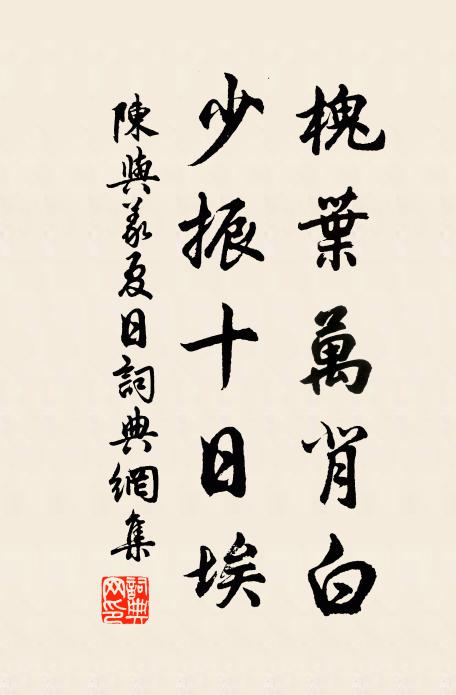 槐葉萬背白
少振十日埃
陳與義夏日詞典網集
詞典网印